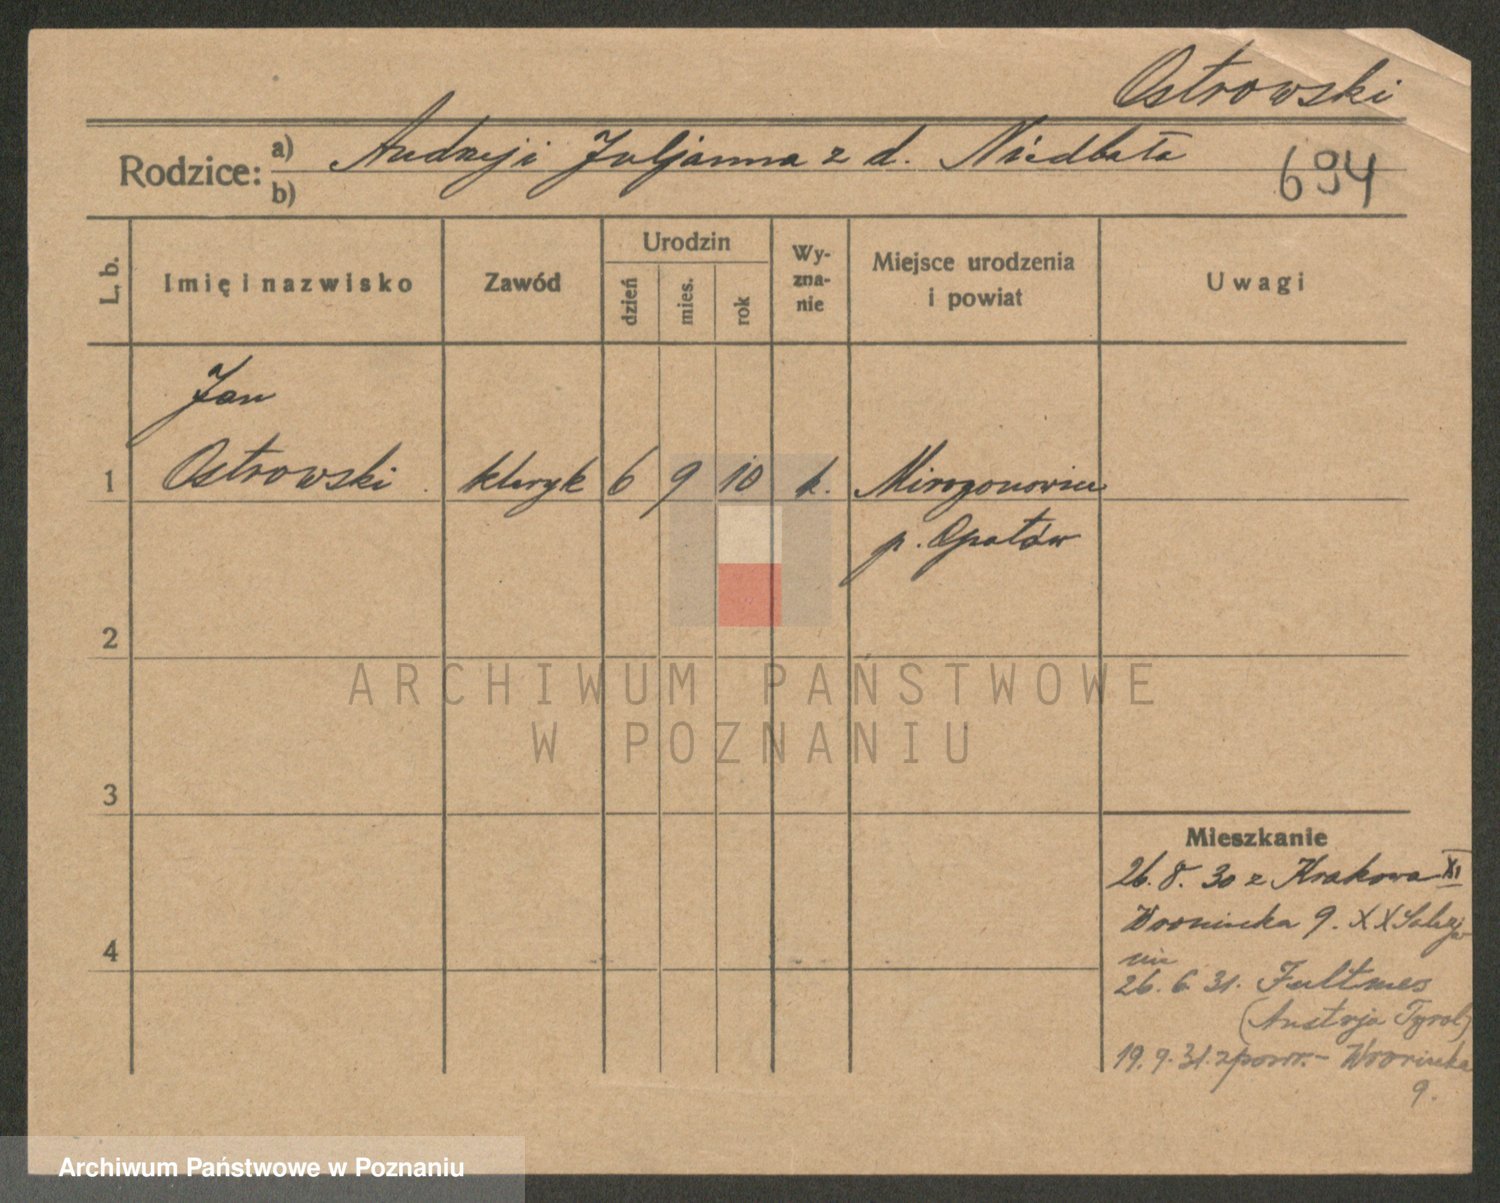 Ostrowski
Rodzice: a) Andrzej i Juljanna z d. Niedbała
b)
694
L. b.
Imię i nazwisko
Zawód
Urodzin
dzień
mies.
rok
Wy-
zna-
nie
Miejsce urodzenia
i powiat
Uwagi
Jan
1 Ostrowski kleryk 6 9 10 k.
p. Opatów
2
ARCHIWUM PAŃSTWOWE
W POZNANIU
3
Mieszkanie
26. 8. 30 z Krakowa XI
9. XX
4
26. 6. 31. Fultmes
(Austrja Tyrol)
19. 9. 31. z powr. -
9.
Archiwum Państwowe w Poznaniu